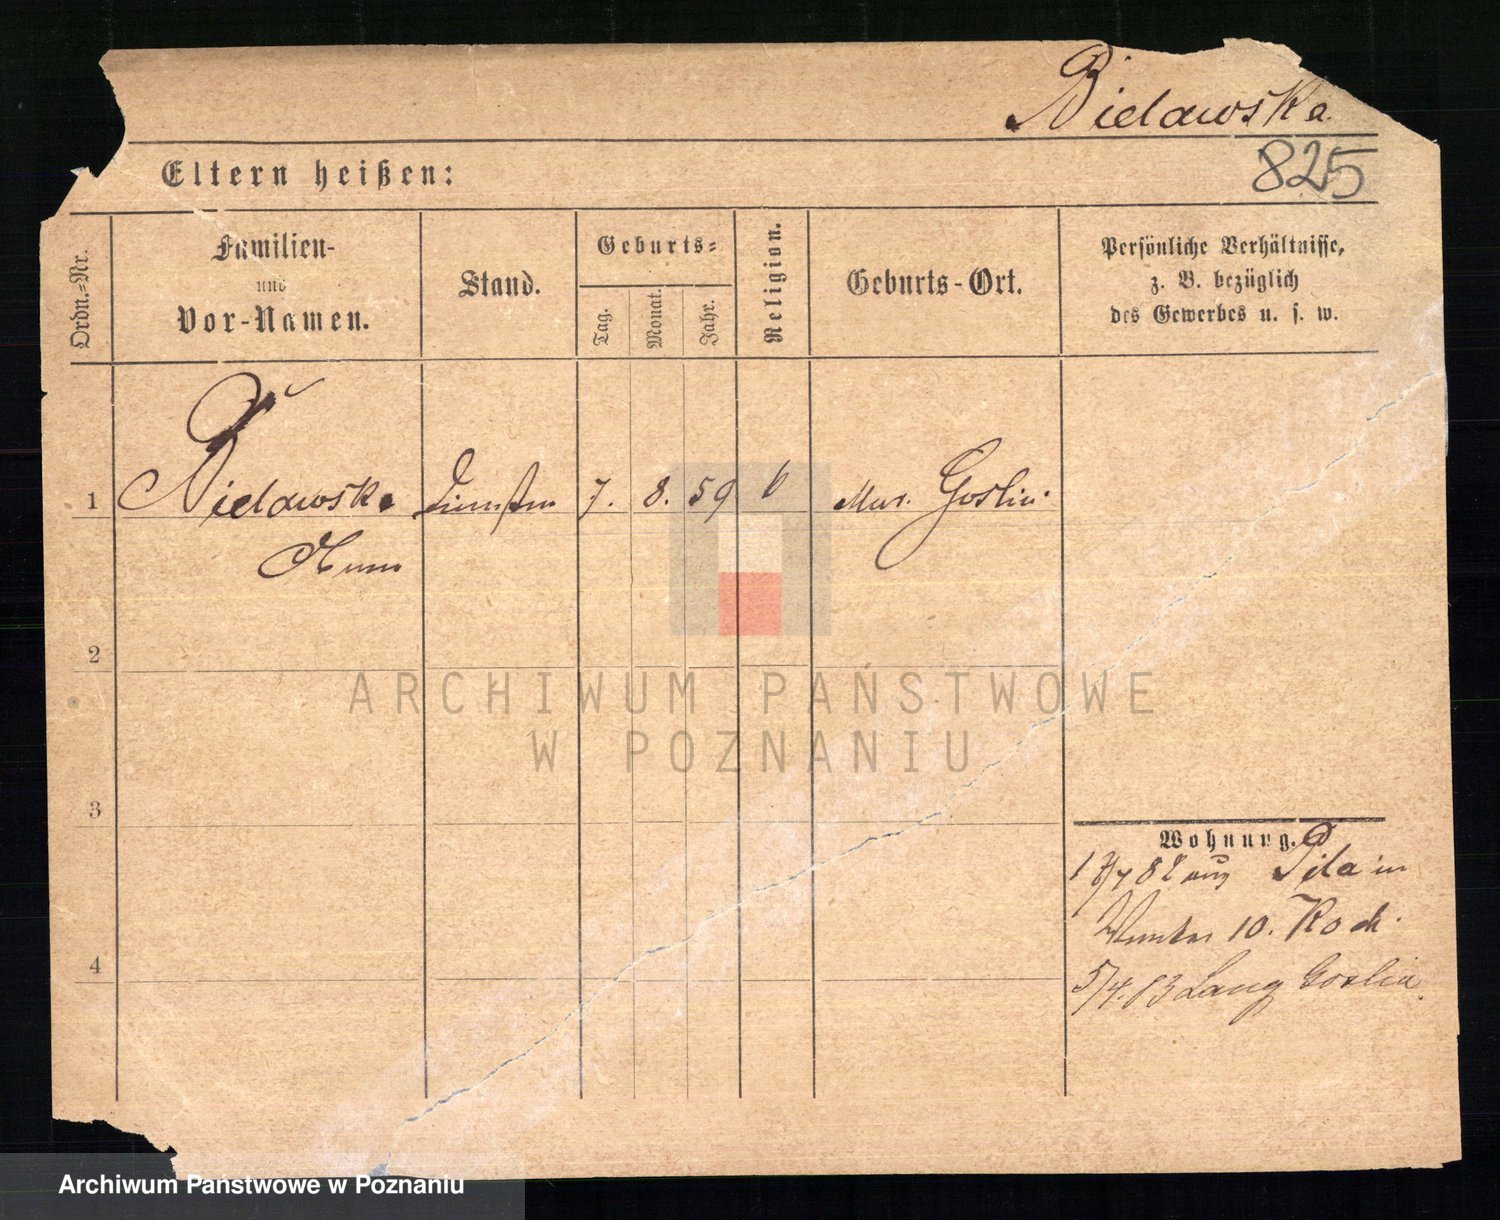 Bielawska
825
Eltern heißen:
Ordn.-Nr.
Familien-
und
Vor-Namen.
Stand.
Geburts-
Tag.
Monat.
Jahr.
Religion.
Geburts-Ort.
Persönliche Verhältnisse,
z. B. bezüglich
des Gewerbes u. s. w.
1 Bielawska 7. 8. 59 Mur. Goslin
2
3
4
Wohnung.
aus Pila in
10.
5/4. 83 Lang Goslin
ARCHIWUM PAŃSTWOWE
W POZNANIU
Archiwum Państwowe w Poznaniu